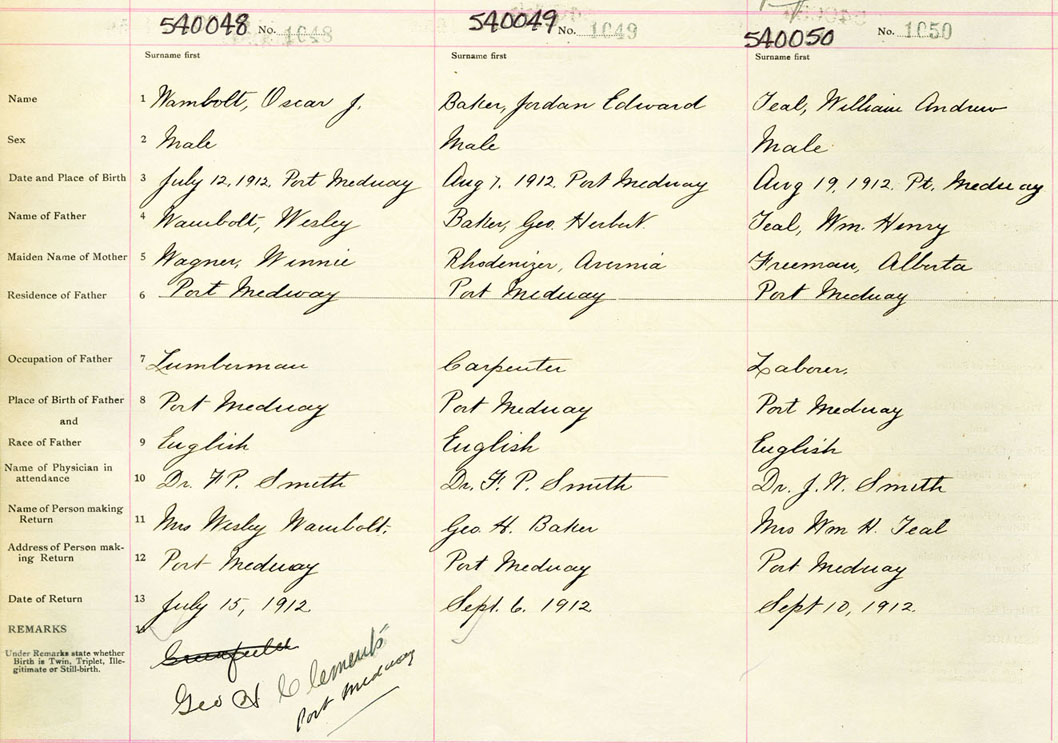 540048 No. 1048 540049 No. 1049 540050 No. 1050
Surname first Surname first Surname first
Name 1 Wambolt, Oscar J. Baker, Jordan Edward Teal, William Andrew
Sex 2 Male Male Male
Date and Place of Birth 3 July 12, 1912. Port Medway Aug 7, 1912. Port Medway Aug 19, 1912. Pt. Medway
Name of Father 4 Wambolt, Wesley Baker, Geo. Herbert. Teal, Wm. Henry
Maiden Name of Mother 5 Wagner, Winnie Rhodenizer, Avernia Freeman, Alberta
Residence of Father 6 Port Medway Port Medway Port Medway
Occupation of Father 7 Lumberman Carpenter Laborer.
Place of Birth of Father 8 Port Medway Port Medway Port Medway
and
Race of Father 9 English English English
Name of Physician in
attendance 10 Dr. F. P. Smith Dr. F. P. Smith Dr. J. W. Smith
Name of Person making
Return 11 Mrs Wesley Wambolt. Geo. H. Baker Mrs Wm H. Teal
Address of Person mak-
ing Return 12 Port Medway Port Medway Port Medway
Date of Return 13 July 15, 1912 Sept. 6. 1912 Sept 10, 1912.
REMARKS 14
Under Remarks state whether
Birth is Twin, Triplet, Ille-
gitimate or Still-birth.
Greenfield
Geo H Clements
Port Medway